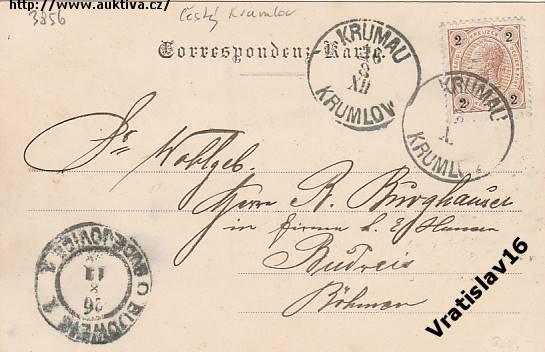 http://www.auktiva.cz/
3856
Český Krumlov
Correspondenz-Karte
KRUMAU
KRUMLOV
XII
2
2
2
2
KRUMAU
KRUMLOV
Sr. Wohlgeb.
Herrn R. Burghauser
in Firma L. E. Hansen
Budweis
Böhmen
BUDWEIS
BUDĚJOVICE
Vratislav16